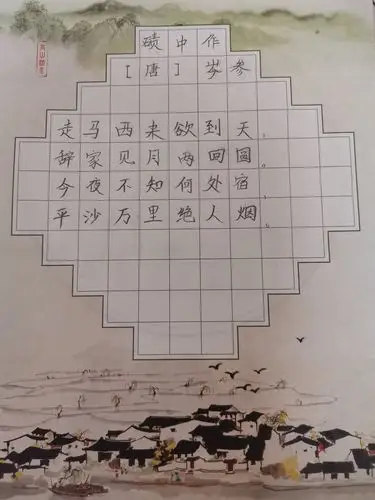 碛中作
[唐] 岑参
走马西来欲到天，
辞家见月两回圆。
今夜不知何处宿，
平沙万里绝人烟。